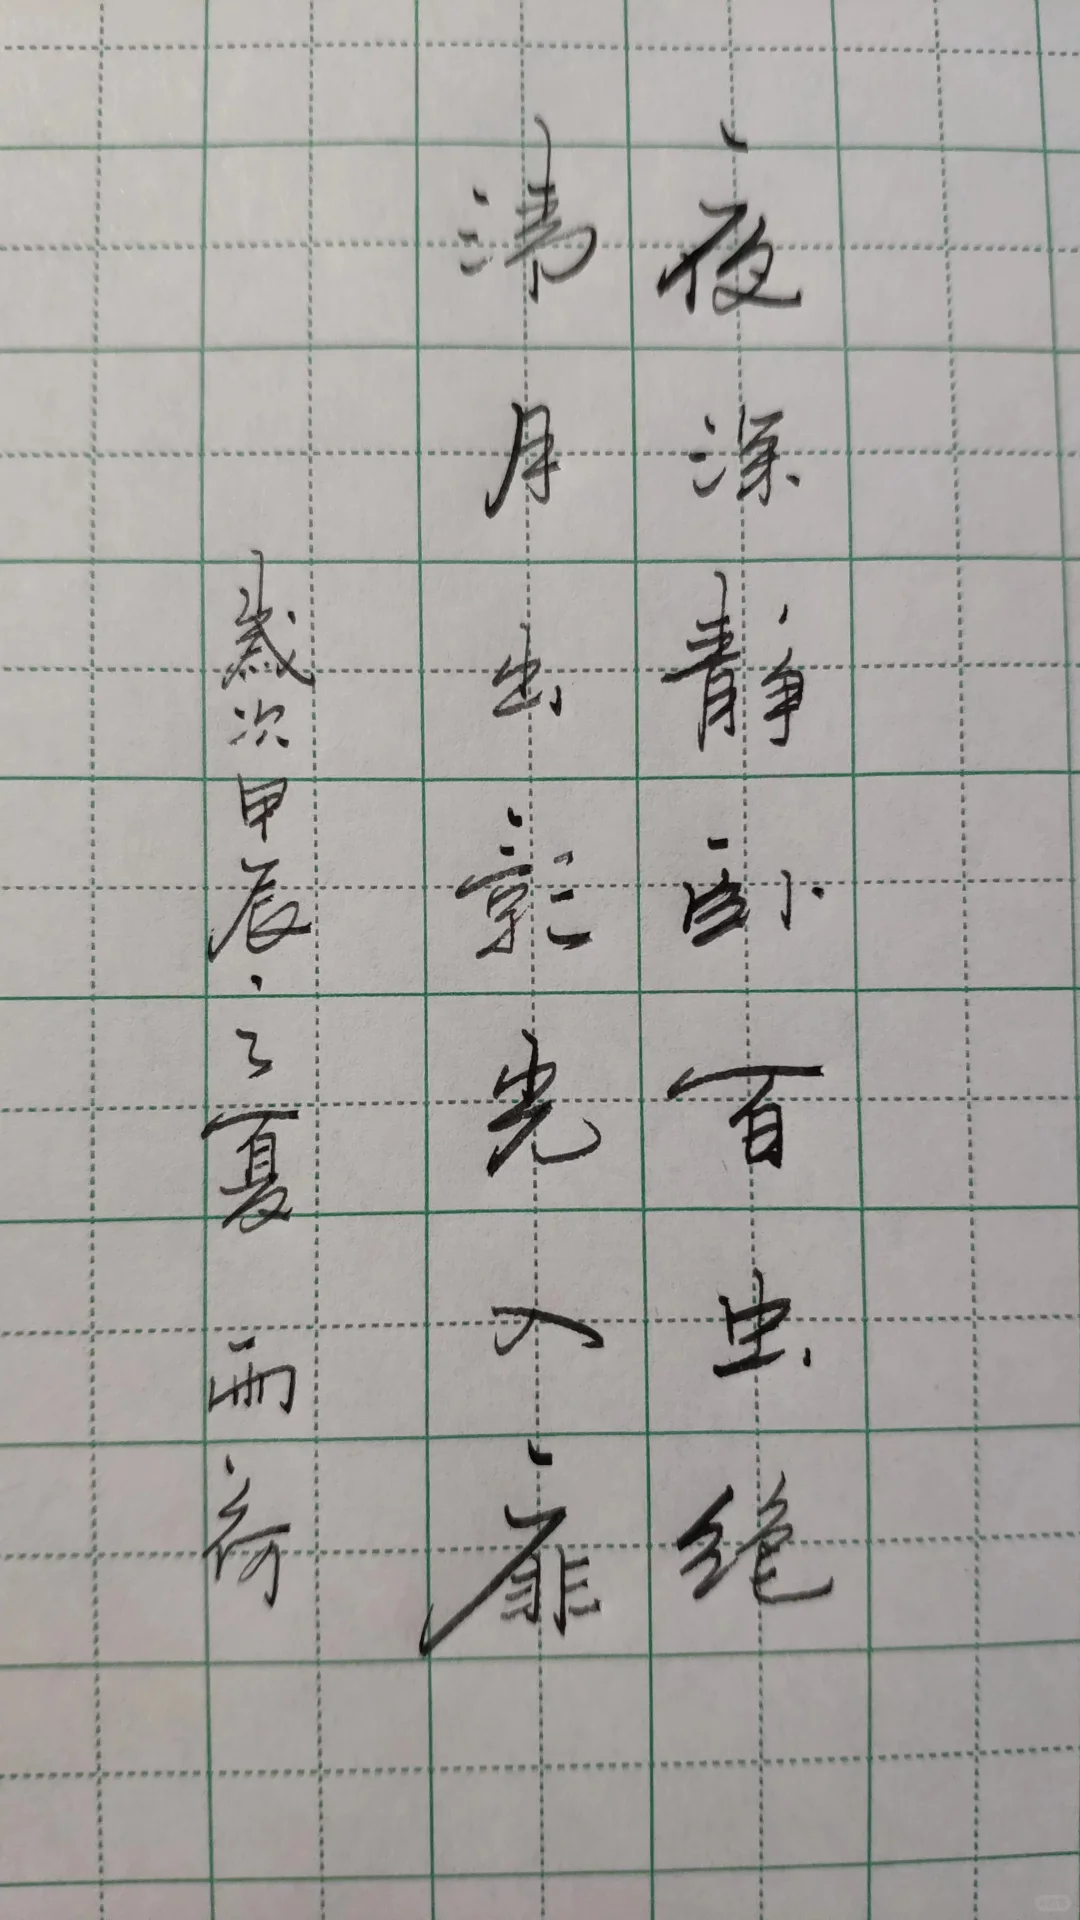 夜深静卧百虫绝
清月出影光入扉
歲次甲辰之夏 雨荷